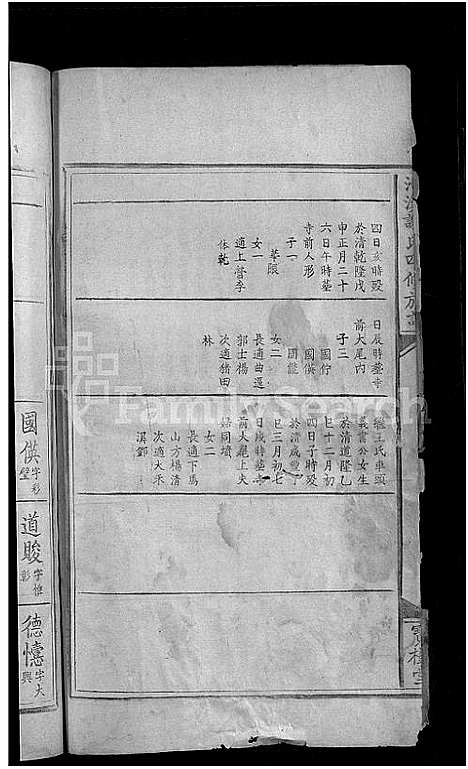 四日亥時殁
於清乾隆戊
申正月二十
六日午時墓
寺前人形
子一
華隈
女一
適上營李
体乾
日辰時塟寺
前大尾内
子三
國佇
國偀
國
女二
長適曲逕
郭士楊
次適猪田
林
繼王氏車頭
義書公女生
於清道隆乙
巳十二月初
四日子時殁
於清咸豐丁
巳三月初七
日戌時塟寺
前大尾上夫
婦同墳
女二
長適下馬
山方楊清
次適大禾
溪鄧
國偀字彩
璧
道畯字惟
彰
德懥字大
興
氏四修族
寶樹堂
FamilySearch